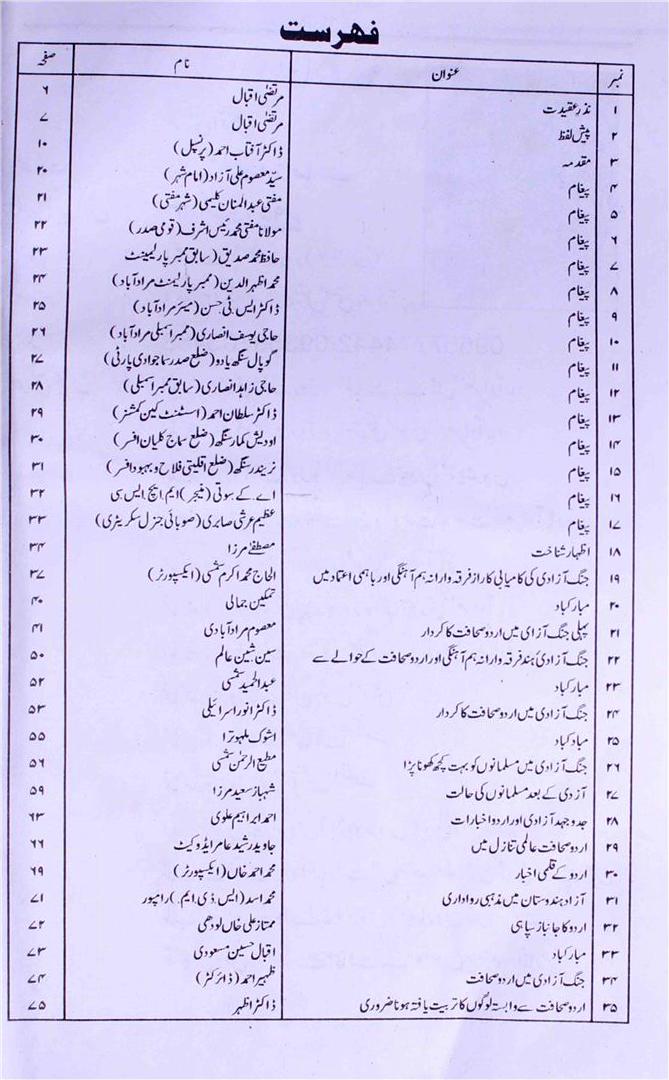 فہرست
نمبر عنوان نام صفحہ
۱ نذر عقیدت مرتضیٰ اقبال ۶
۲ پیش لفظ مرتضیٰ اقبال ۷
۳ مقدمہ ڈاکٹر آفتاب احمد (پرنسپل) ۱۰
۴ پیغام سیّد معصوم علی آزاد (امام شہر) ۲۰
۵ پیغام مفتی عبدالمنان کلیمی (شہر مفتی) ۲۱
۶ پیغام مولانا مفتی محمد رئیس اشرف (قومی صدر) ۲۲
۷ پیغام حافظ محمد صدیق (سابق ممبر پارلیمینٹ) ۲۳
۸ پیغام محمد اظہر الدین (ممبر پارلیمنٹ مرادآباد) ۲۴
۹ پیغام ڈاکٹر ایس۔ٹی۔حسن (میئر مرادآباد) ۲۵
۱۰ پیغام حاجی یوسف انصاری (ممبر اسمبلی مرادآباد) ۲۶
۱۱ پیغام گوپال سنگھ یادو (ضلع صدر سماجوادی پارٹی) ۲۷
۱۲ پیغام حاجی زاہد انصاری (سابق ممبر اسمبلی) ۲۸
۱۳ پیغام ڈاکٹر سلطان احمد (اسسٹنٹ کین کمشنر) ۲۹
۱۴ پیغام اودیش کمار سنگھ (ضلع سماج کلیان افسر) ۳۰
۱۵ پیغام نریندر سنگھ (ضلع اقلیتی فلاح و بہبود افسر) ۳۱
۱۶ پیغام اے کے سوتی (منیجر) ایم۔ایچ۔ایس سی ۳۲
۱۷ پیغام عظیم عرشی صابری (صوبائی جنرل سکریٹری) ۳۳
۱۸ اظہار شناخت مصطفےٰ مرزا ۳۴
۱۹ جنگ آزادی کی کامیابی کا راز فرقہ وارانہ ہم آہنگی اور باہمی اعتماد میں الحاج محمد اکرم شمسی (ایکسپورٹر) ۳۷
۲۰ مبارکباد تمکین جمالی ۴۰
۲۱ پہلی جنگ آزای میں اردو صحافت کا کردار معصوم مرادآبادی ۴۱
۲۲ جنگ آزادیٔ ہند فرقہ وارانہ ہم آہنگی اور اردو صحافت کے حوالے سے سین شین عالم ۵۰
۲۳ مبارکباد عبدالحمید شمسی ۵۲
۲۴ جنگ آزادی میں اردو صحافت کا کردار ڈاکٹر انور اسرائیلی ۵۳
۲۵ مباوکباد اشوک ملہوترا ۵۵
۲۶ جنگ آزادی میں مسلمانوں کو بہت کچھ کھونا پڑا مطیع الرحمٰن شمسی ۵۶
۲۷ آزدی کے بعد مسلمانوں کی حالت شہباز سعید مرزا ۵۹
۲۸ جدوجہد آزادی اور اردو اخبارات احمد ابراہیم علوی ۶۳
۲۹ اردو صحافت عالمی تنازل میں جاوید رشید عامر ایڈوکیٹ ۶۶
۳۰ اردو کے قلمی اخبار محمد احمد خاں (ایکسپورٹر) ۶۹
۳۱ آزاد ہندوستان میں مذہبی رواداری محمد اسد (ایس۔ڈی۔ایم۔) رامپور ۷۱
۳۲ اردو کا جانباز سپاہی ممتاز علی خاں لودھی ۷۲
۳۳ مبارکباد اقبال حسین مسعودی ۷۳
۳۴ جنگ آزادی میں اردو صحافت ظہیر احمد (ڈائرکٹر) ۷۴
۳۵ اردو صحافت سے وابستہ لوگوں کا تربیت یافتہ ہونا ضروری ڈاکٹر اظہر ۷۵